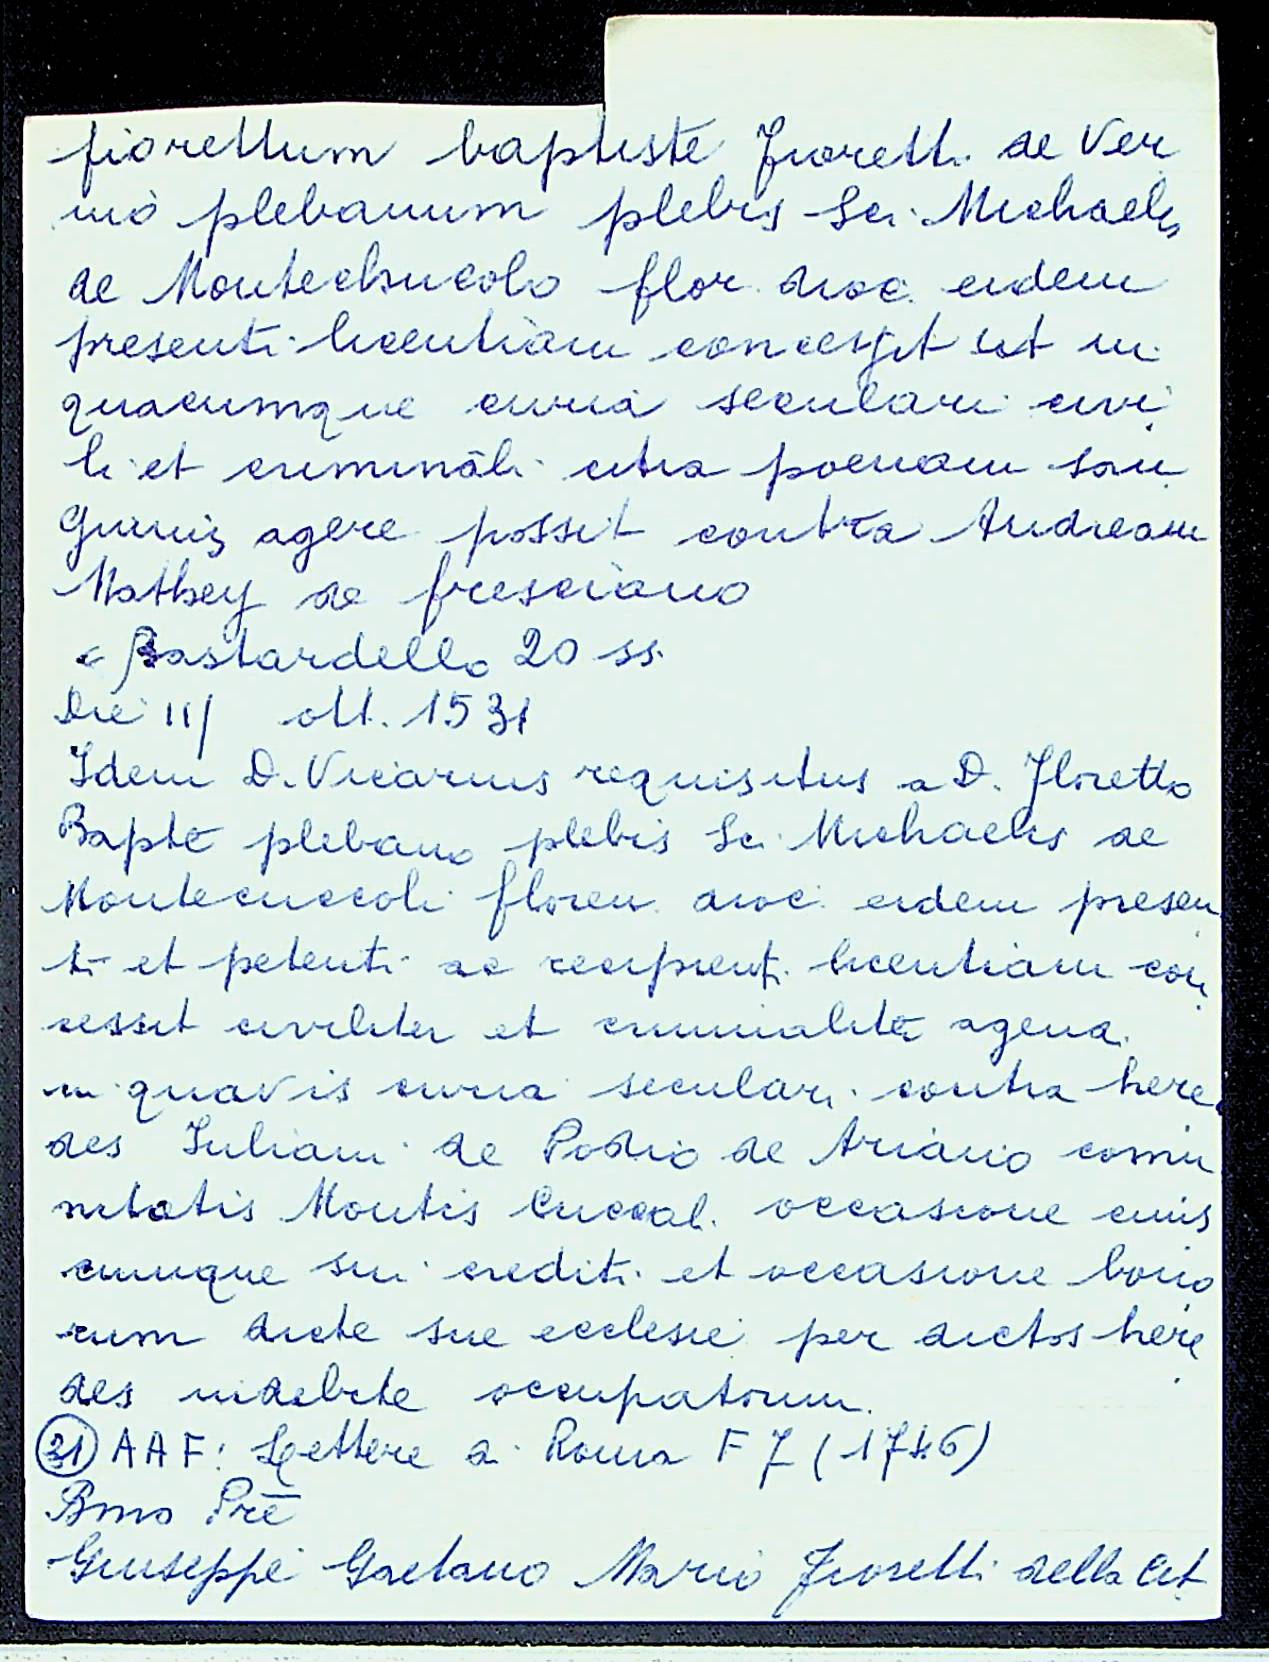 fiorettum baptiste Fioretti de Ver
nio plebanum plebis Sci. Michaelis
de Montechucolo flor. dioc. eidem
presenti licentiam concessit ut in
quacumque curia seculari civi
li et criminali citra poenam san
guinis agere possit contra Andream
Mathey de fresciano
Bastardello 20 ss.
Die III ott. 1531
Idem D. Vicarius requisitus a D. Floretto
Bapte plebano plebis Sci. Michaelis de
Montecuccoli floren. dioc. eidem presen
ti et petenti ac recipienti licentiam con
cessit civiliter et criminalite agendi
in quavis curia seculari contra here
des Iuliani de Podio de Ariano comu
nitatis Montis Cuccol. occasione cuius
cumque sui crediti et occasione bono
rum dicte sue ecclesie per dictos here
des indebite occupatorum.
31 AAF: Lettere a Roma F 7 (1746)
Bmo Prē
Giuseppe Gaetano Mario Fioretti della Cit